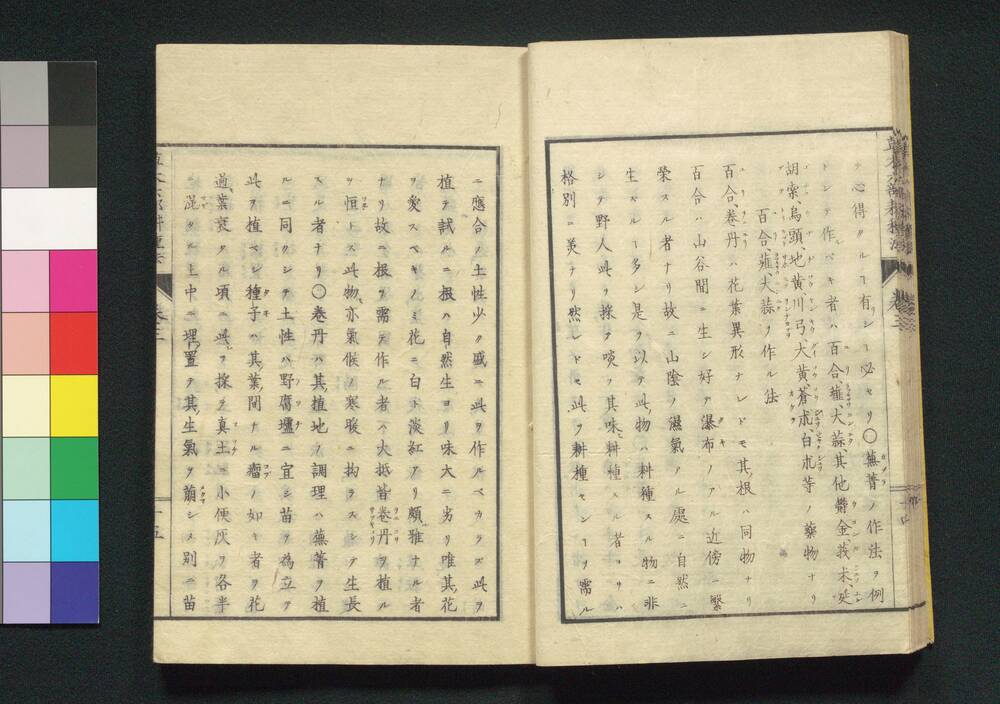 テ心得タルヿ有リシ必セリ〇蕪菁ノ作法ヲ例
トシテ作ベキ者ハ百合、薤、大蒜、其他欝金、莪朮、延
胡索、烏頭、地黄、川芎、大黄、蒼朮、白朮等ノ藥物ナリ
百合、薤、大蒜ヲ作ル法
百合、卷丹ハ花葉異形ナレドモ其根ハ同物ナリ
百合ハ山谷間ニ生シ好テ瀑布ノアル近傍ニ繁
榮スル者ナリ故ニ山陰ノ濕氣アル處ニ自然ニ
生スルヿ多シ是ヲ以テ此物ハ耕種スル物ニ非
シテ野人此ヲ採テ啖フ其味耕種スル者ヨリハ
格別ニ美ナリ然レドモ此ヲ耕種センヿヲ需ル
ニ應合ノ土性少ク感ニ此ヲ作ルベカラズ此ヲ
植テ試ルニ根ハ自然生ヨリ味大ニ劣リ唯其花
ヲ愛スベキノミ花ニ白ト淡紅アリ頗雅ナル者
ナリ故ニ根ヲ需テ作ル者ハ大抵皆卷丹ヲ植ル
ヲ恒トス此物亦氣候ノ寒暖ニ拘ラズシテ生長
スル者ナリ〇卷丹ハ其植地ノ調理ハ蕪菁ヲ植
ルニ同クシテ土性ハ野腐壚ニ宜シ苗ヲ為立テ
此ヲ植ベシ種子ハ其葉間ナル瘤ノ如キ者ヲ花
過葉衰タル頃ニ此ヲ採テ真土ニ小便灰ヲ各半
混タル土中ニ埋置テ其生氣ヲ萠シメ別ニ苗
卷三
十五